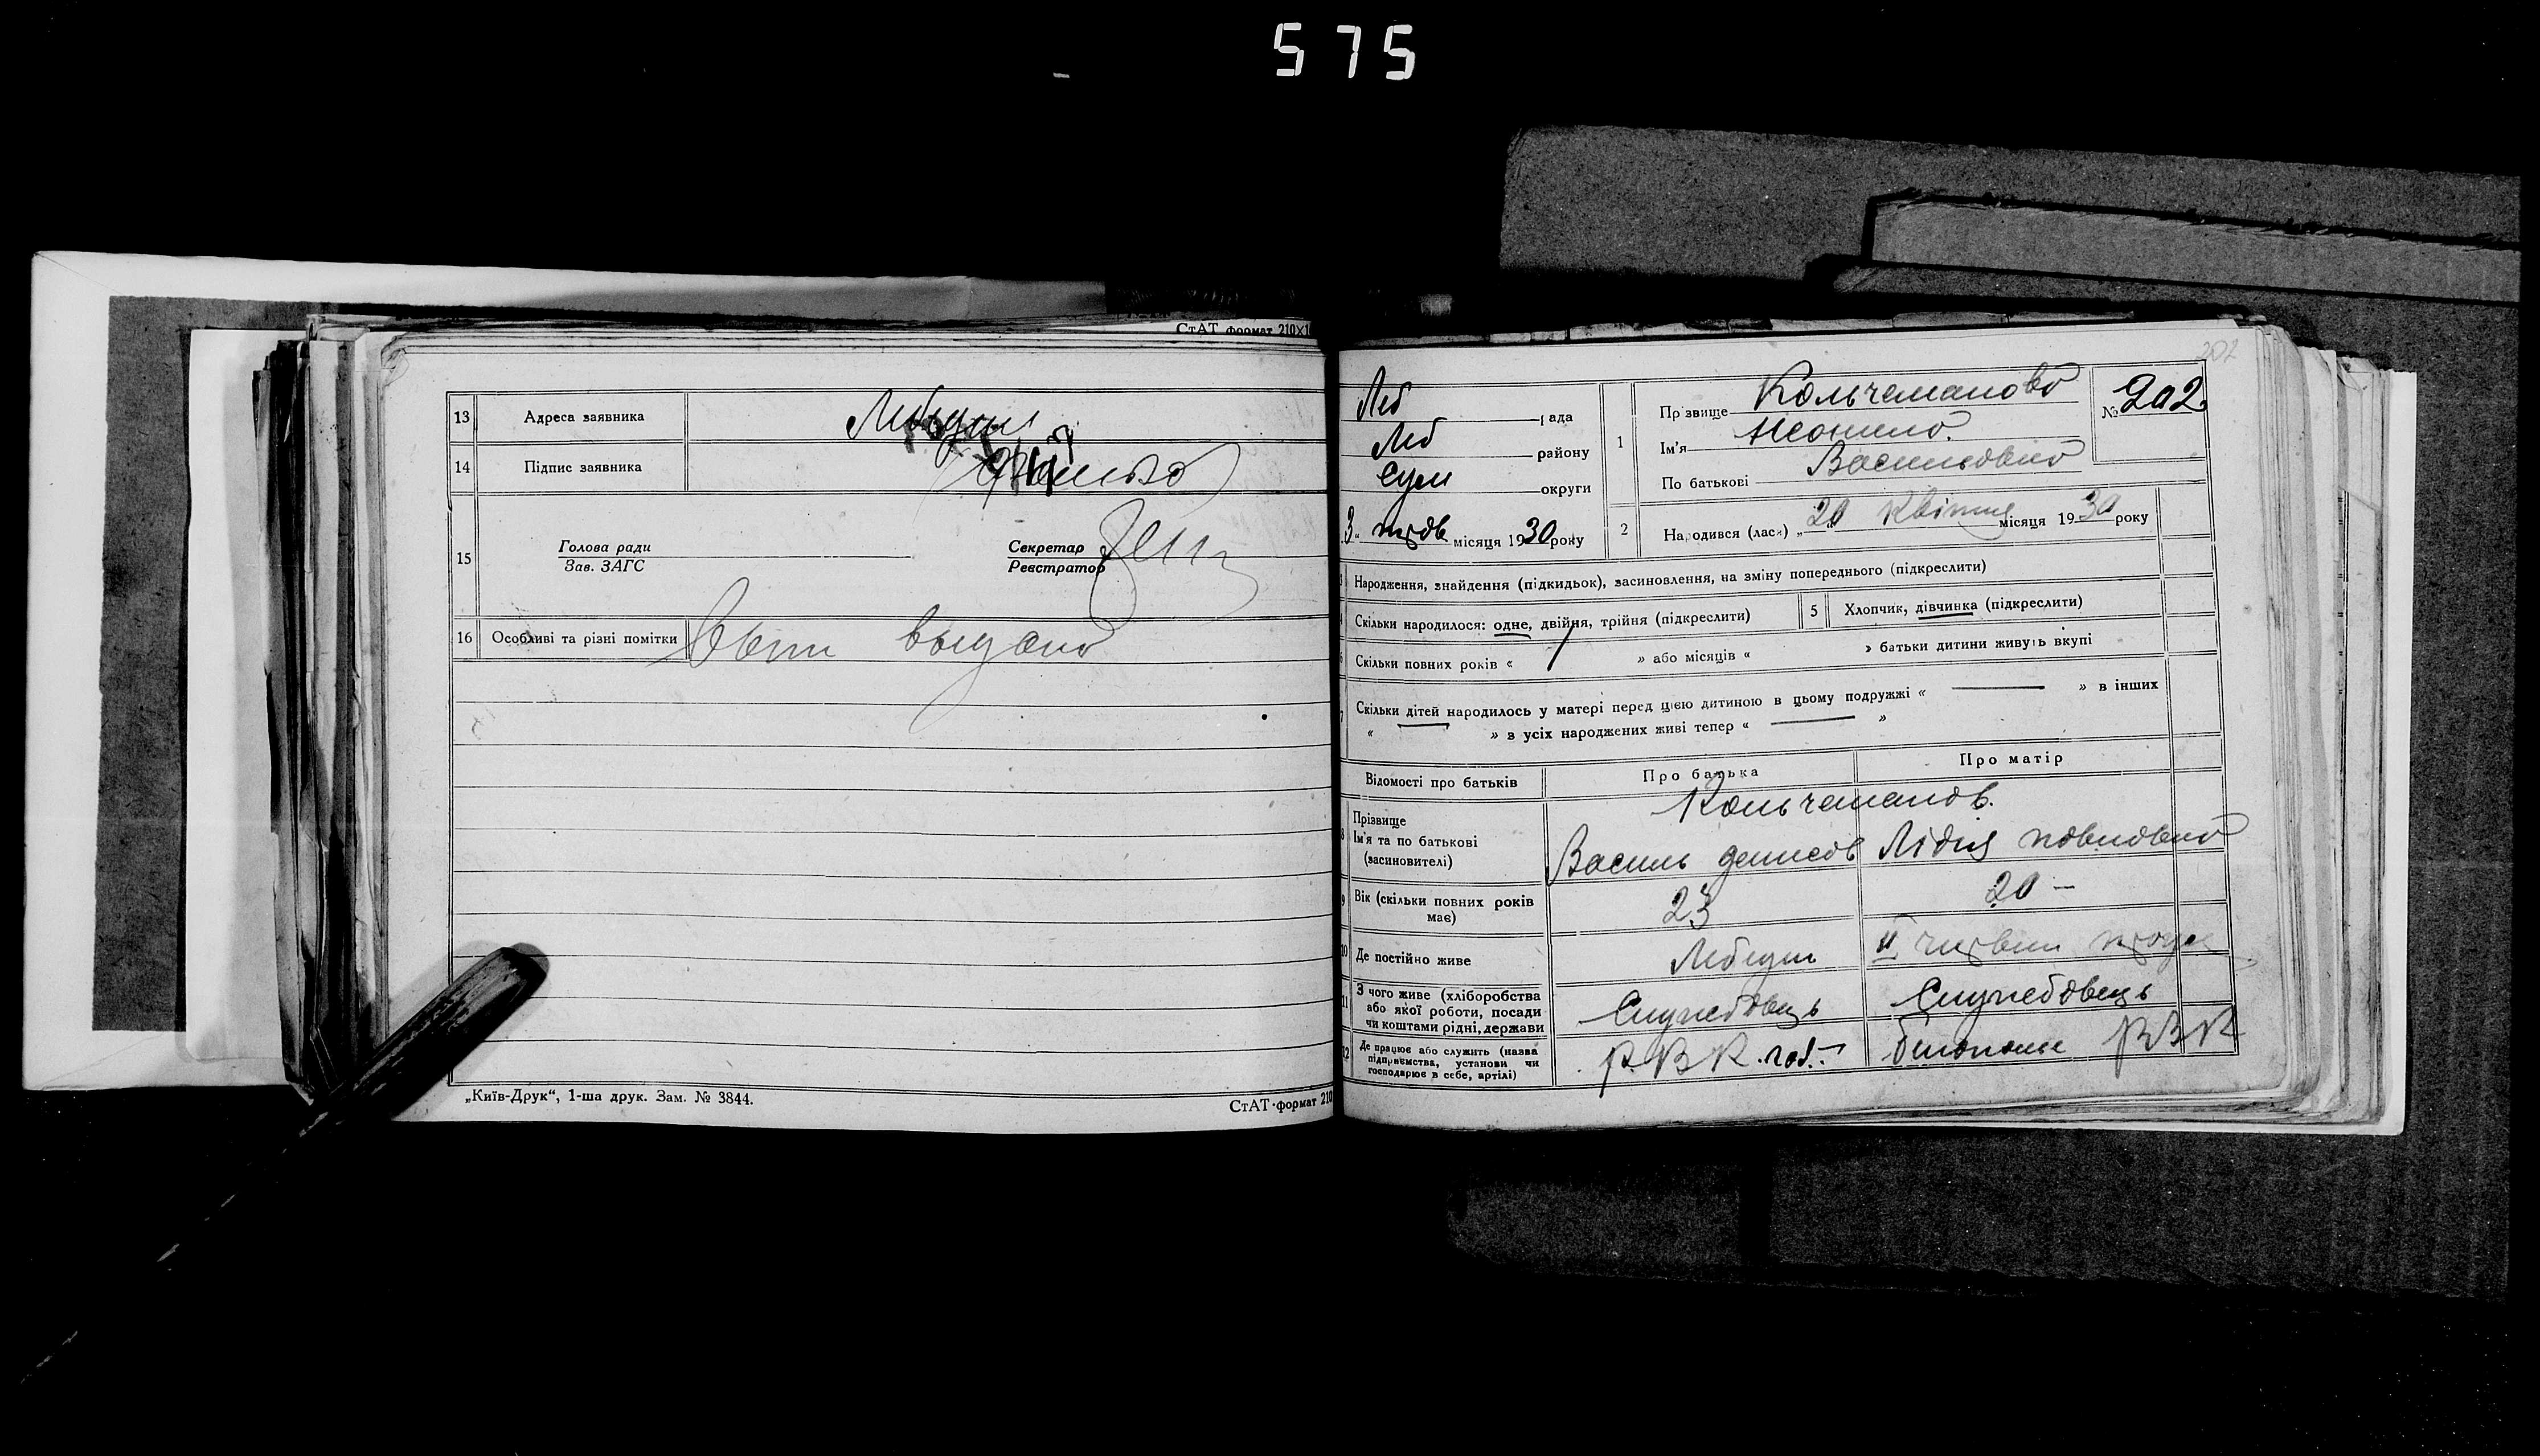 575
СтАТ формат 210×1
13 Адреса заявника Лебедин
14 Підпис заявника
15 Голова ради Секретар
Зав. ЗАГС Реєстратор
16 Особливі та різні помітки
„Київ-Друк“, 1-ша друк. Зам. № 3844.
СтАТ·формат 210
202
Леб рада
Леб району
Сум округи
3 травн місяця 1930 року
1 Прізвище Кольчеманова
Ім'я Неонила
По батькові Васильовна
№ 202
2 Народився (лась) „20 Квітня місяця 1930 року
Народження, знайдення (підкидьок), засиновлення, на зміну попереднього (підкреслити)
Скільки народилося: одне, двійня, трійня (підкреслити)
5 Хлопчик, дівчинка (підкреслити)
Скільки повних років « » або місяців « » батьки дитини живуть вкупі
Скільки дітей народилось у матері перед цією дитиною в цьому подружжі « — » в інших
« — » з усіх народжених живі тепер « — »
Відомості про батьків Про батька Про матір
Прізвище Кольчеманов.
Ім'я та по батькові
(засиновителі) Василь денисов Лідия павловна
9 Вік (скільки повних років має) 23 20 —
10 Де постійно живе Лебедин
11 З чого живе (хліборобства
або якої роботи, посади
чи коштами рідні, держави Службовець Службовець
12 Де працює або служить (назва
підприємства, установи чи
господарює в себе, артілі) Р.В.К. РВК